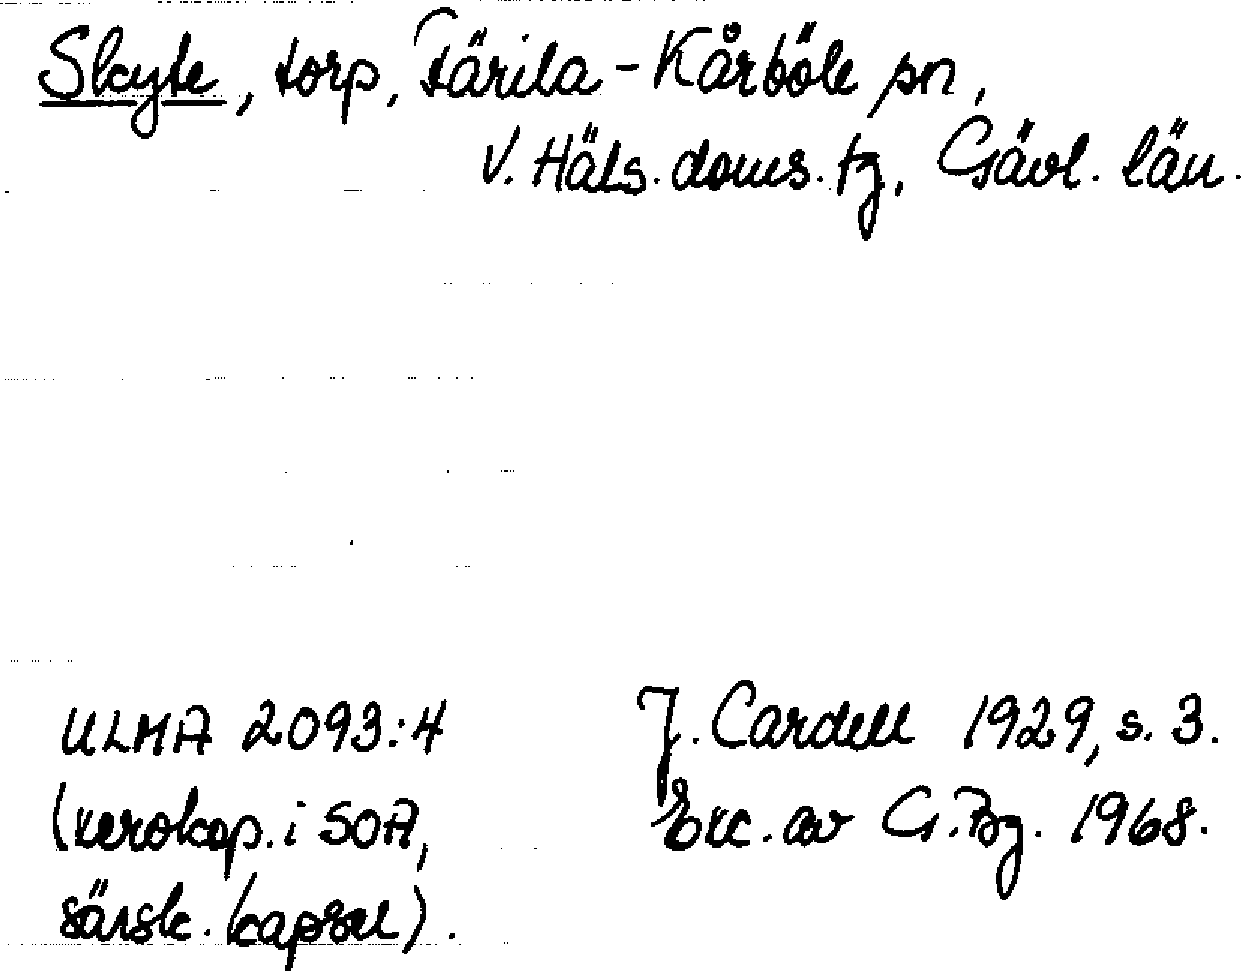 Skyte, torp, Färila-Kårböle sn,
V. Häls. doms. tg, Gävl. län.
ULMA 2093:4
(xerokop. i SOA,
särsk. kapsel).
J. Cardell 1929, s. 3.
Exc. av G. Bg. 1968.